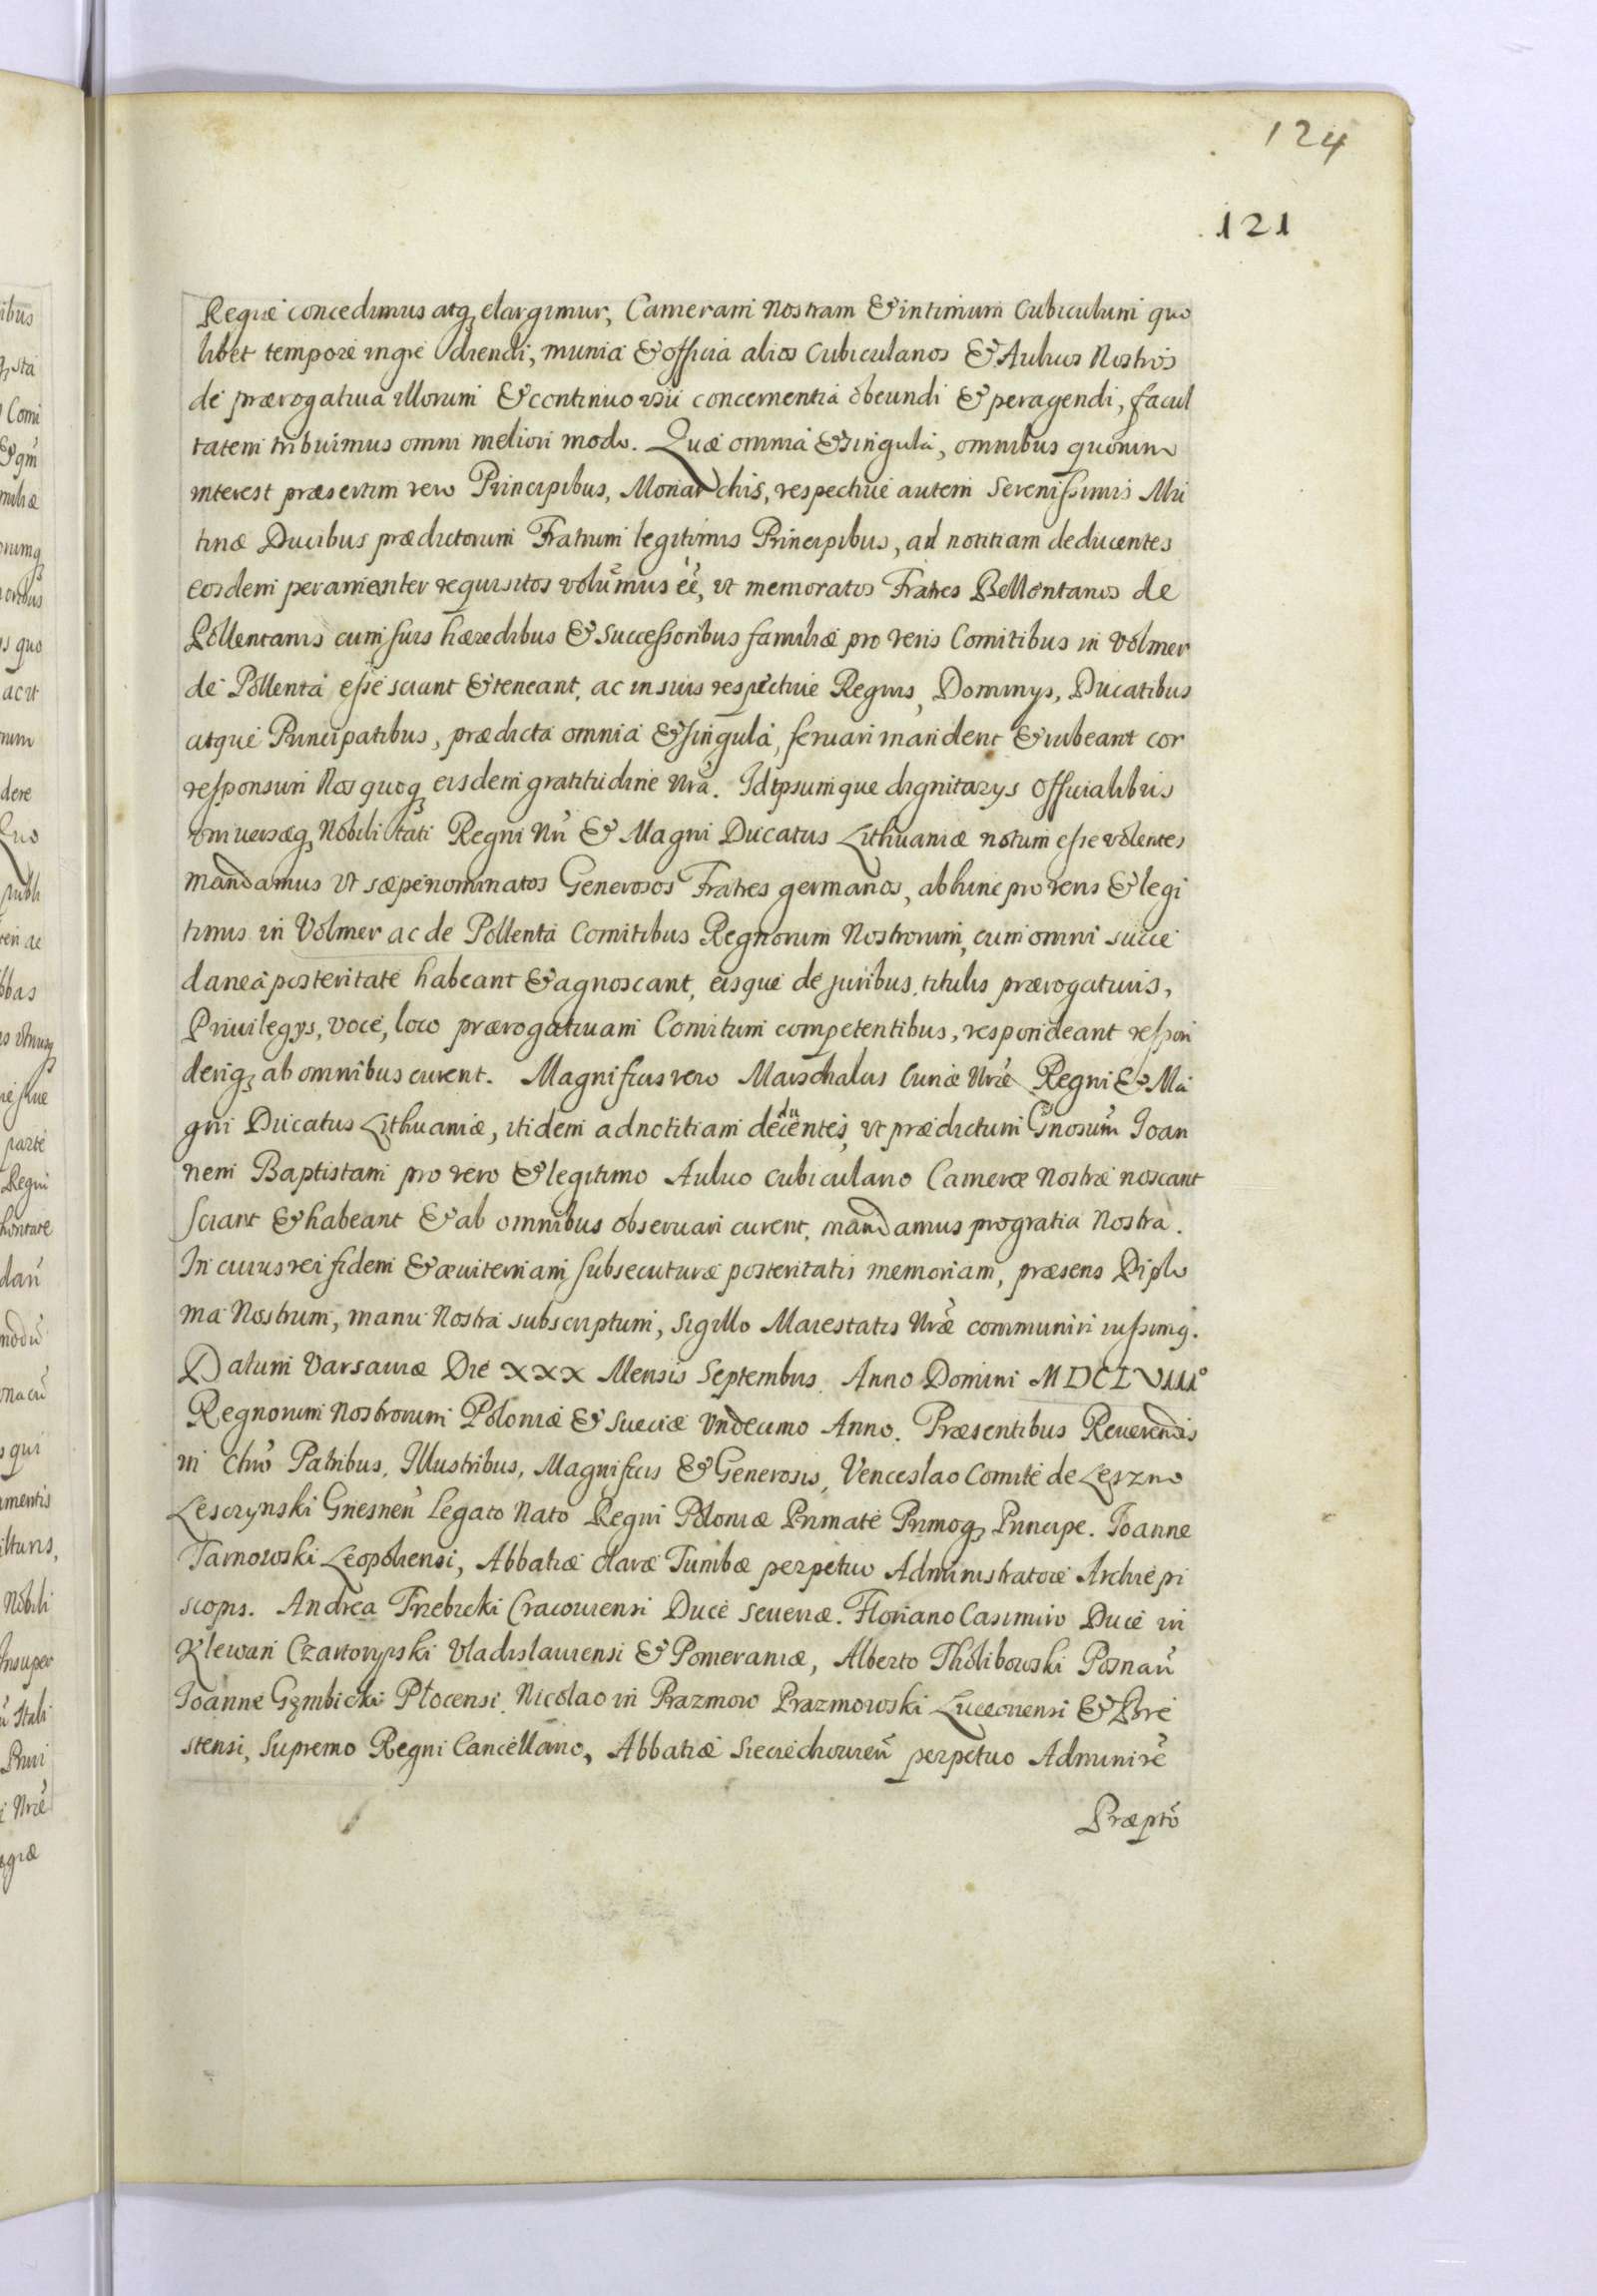 124
121
Regiè concedimus atq₃ elargimur, Cameram Nostram & intimum Cubiculum quo
libet tempore ingre diendi, munia & officia alios Cubicularios & Aulicos Nostros
de prærogatiua illorum & continuo usu concernentia obeundi & peragendi, facul
tatem tribuimus omni meliori modo. Quæ omnia & singula, omnibus quorum
interest præsertim vero Principibus, Monarchis, respectiuè autem Serenissimis Mu
tinæ Ducibus prædictorum Fratrum legitimis Principibus, ad notitiam deducentes
eosdem peramanter requisitos volumus eẽ, vt memoratos Fratres Pollentanos de
Pollentanis cum suis hæredibus & Successoribus familiæ pro veris Comitibus in Volmer
de Pollentà esse sciant & teneant, ac in suis respectiuè Regnis, Dominijs, Ducatibus
atque Principatibus, prædicta omnia & singula, seruari mandent & iubeant cor
responsuri Nos quoq₃ eisdem gratitudine Nrã. Idipsumque dignitarijs Officialibus
vniuersæq₃ Nobilitati Regni Nri & Magni Ducatus Lithuaniæ notum esse volentes
mandamus vt sæpenominatos Generosos Fratres germanos, abhinc pro veris & legi
timis in Volmer ac de Pollentà Comitibus Regnorum Nostrorum, cum omni succe
daneà posteritate habeant & agnoscant, eisque de juribus, titulis prærogatiuis,
Priuilegijs, voce, loco prærogatiuam Comitum competentibus, respondeant respon
deriq₃ ab omnibus curent. Magnificus vero Marschalus Curiæ Nræ Regni & Ma
gni Ducatus Lithuaniæ, itidem ad notitiam deducentes, vt prædictum Gñosum Joan
nem Baptistam pro vero & legitimo Aulico Cubiculario Cameræ Nostræ noscant
sciant & habeant & ab omnibus obseruari curent, mandamus pro gratia Nostra.
In cuius rei fidem & æuiternam subsecuturæ posteritatis memoriam, præsens Diplo
ma Nostrum, manu Nostrà subscriptum, Sigillo Maiestatis Nræ communiri iussimq₃.
Datum Varsauiæ Die XXX Mensis Septembris. Anno Domini MDCLVIII°
Regnorum Nostrorum Poloniæ & Sueciæ Vndecimo Anno. Præsentibus Reuerendis
in Chrõ Patribus, Illustribus, Magnificis & Generosis, Venceslao Comite de Leszno
Lesczynski Gnesneñ Legato Nato Regni Poloniæ Primate Primoq₃ Principe. Joanne
Tarnowski Leopoliensi, Abbatiæ claræ Tumbæ perpetuo Administratore Archiepi
scopis. Andrea Trzebicki Cracouiensi Duce Seueriæ. Floriano Casimiro Duce in
Klewan Czartoryiski Vladislauiensi & Pomeraniæ, Alberto Tholibowski Posnañ
Joanne Gembicki Plocensi. Nicolao in Prazmow Prazmowski Luceoriensi & Bre
stensi, Supremo Regni Cancellario, Abbatiæ Sieciechouieñ perpetuo Adminire
Præptõ